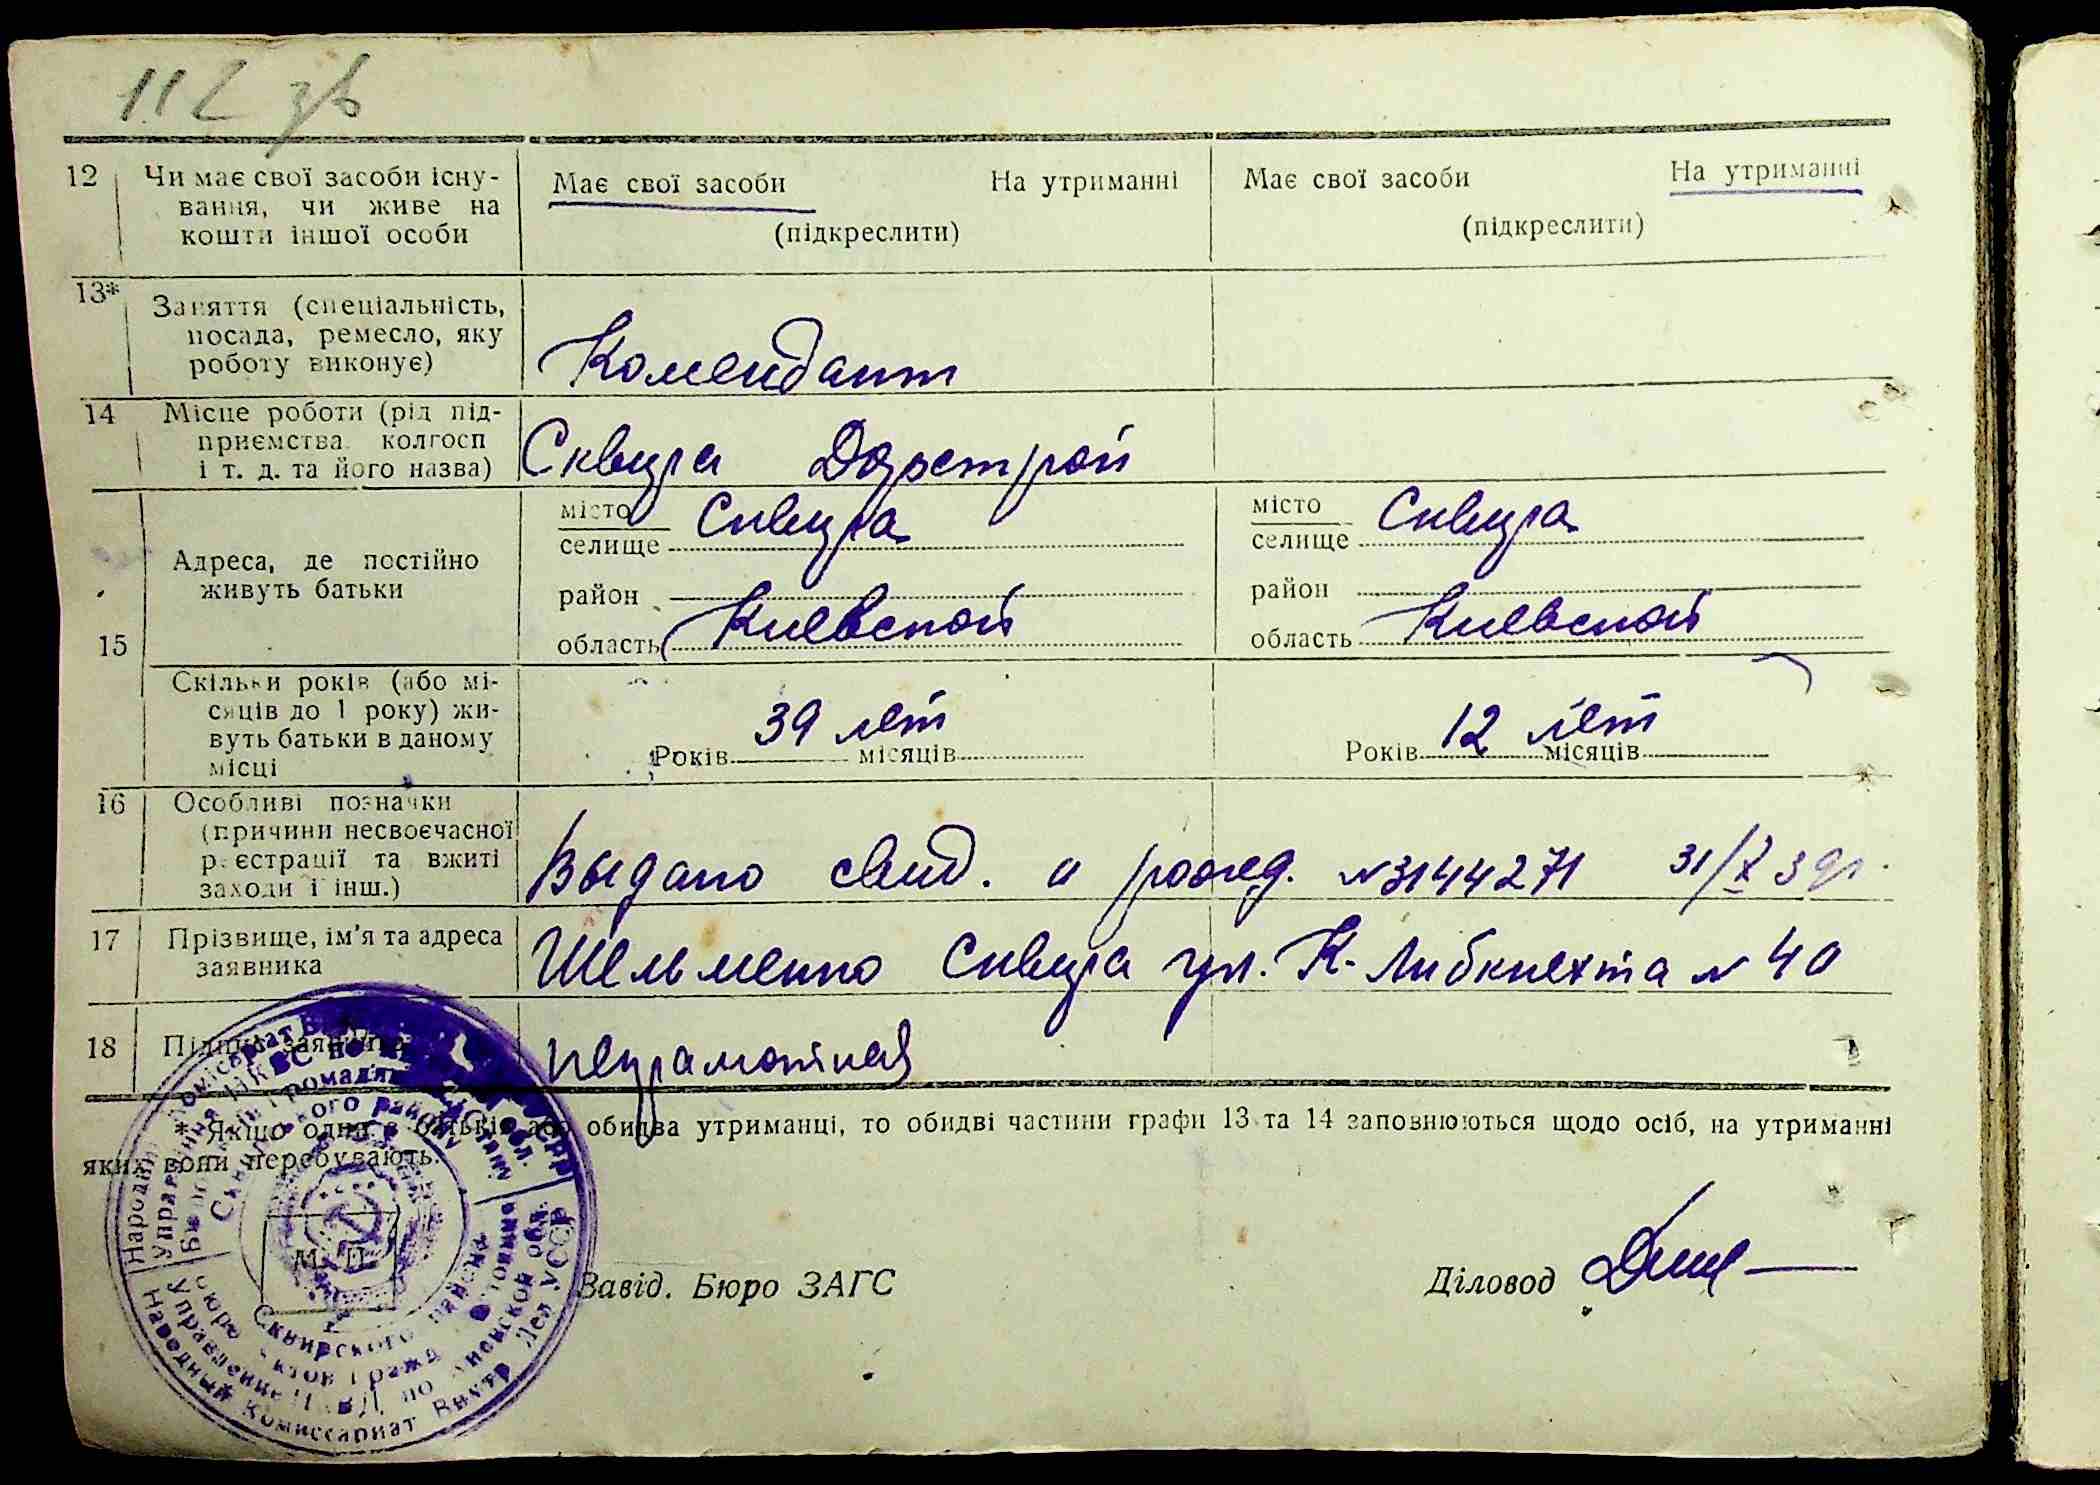 112 зв
12 Чи має свої засоби існу-
вання, чи живе на
кошти іншої особи
Має свої засоби На утриманні
(підкреслити)
Має свої засоби На утриманні
(підкреслити)
13* Заняття (спеціальність,
посада, ремесло, яку
роботу виконує)
Комендант
14 Місце роботи (рід під-
приємства, колгосп
і т. д. та його назва)
Сквира Дорстрой
15 Адреса, де постійно
живуть батьки
місто Сквира
селище
район
область Киевской
місто Сквира
селище
район
область Киевской
Скільки років (або мі-
сяців до 1 року) жи-
вуть батьки в даному
місці
39 лет
Років місяців
12 лет
Років місяців
16 Особливі позначки
(причини несвоєчасної
реєстрації та вжиті
заходи і інш.)
Выдано свид. о рожд. №3144271 31/X 39г.
17 Прізвище, ім'я та адреса
заявника
Шельменко Сквира ул. К. Либкнехта № 40
18 Підпис заявника
неграмотная
* Якщо один з батьків або обидва утриманці, то обидві частини графи 13 та 14 заповнюються щодо осіб, на утриманні
яких вони перебувають.
М. П.
Завід. Бюро ЗАГС
Діловод
Сквирского района
Управление НКВД по Киевской обл.
Народный Комиссариат Внутр. Дел УССР